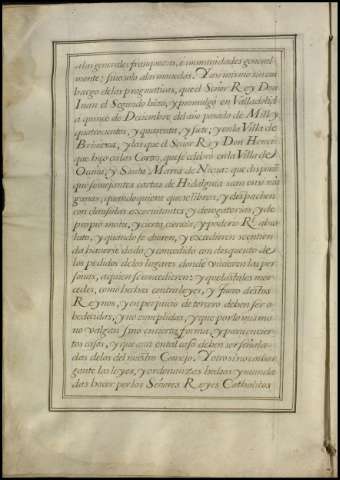 a las generales franquezas, e inmunidades general-
mente; si no solo a las monedas. Y ansi mismo sin em-
bargo de las pragmaticas, que el Señor Rey Don
Iuan el Segundo hizo, y promulgo en Valladolid
a quince de Deciembre del año pasado de Mill, y
quatrocientos, y quarenta, y siete; y en la Villa de
y las que el Señor Rey Don Henriq
que hiço en las Cortes, que se celebró en la Villa de
Ocaña; y Santa Maria de Nieua: que disponē
que semejantes cartas de Hidalguia sean en si nin-
gunas, quando quiera que se libren, y despachen
con clausulas exorbitantes, y derogatorias, y de
proprio motu, y cierta ciencia, y poderio Rl. abso-
luto, y quando se dieren, y excedieren se entien-
da haverse dado, y concedido con desquento de
los pedidos de los lugares donde vivieren las per-
sonas, a quien se concedieren: y que las tales mer-
cedes, como hechas contra leyes, y fuero destos
Reynos, y en perjuicio de tercero deben ser o-
bedecidas, y no complidas, y que por lo mismo
no valgan, sino en cierta forma, y para en cier-
tos casos, y que aun en tal caso deben ser señala-
das de los del nuestro Consejo. Y otro si no enbar-
gante las leyes, y ordenanzas hechas, y manda-
das hacer por los Señores Reyes Catholicos